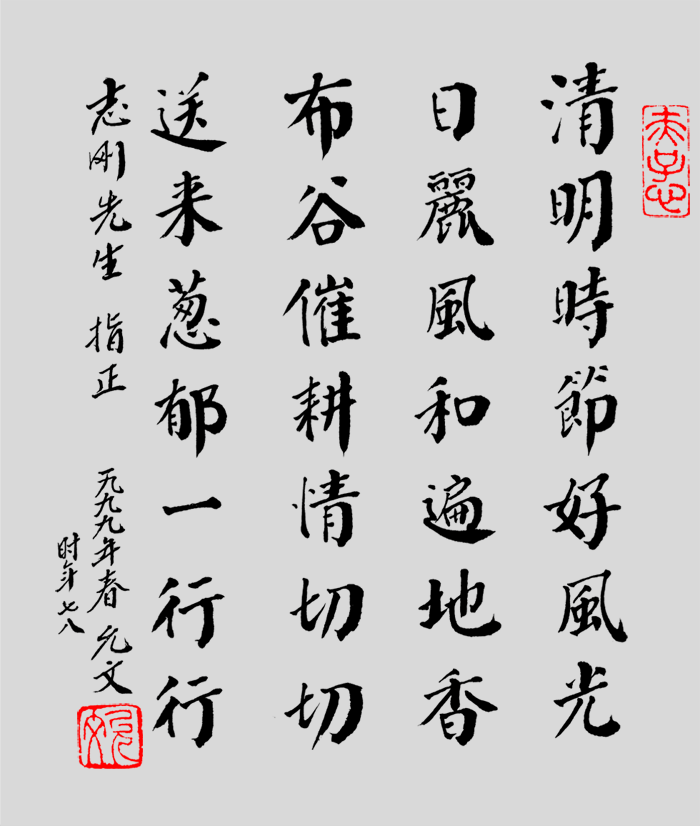 清明時節好風光
日麗風和遍地香
布谷催耕情切切
送来葱郁一行行
志刚先生 指正
一九九九年春 允文
时年七八